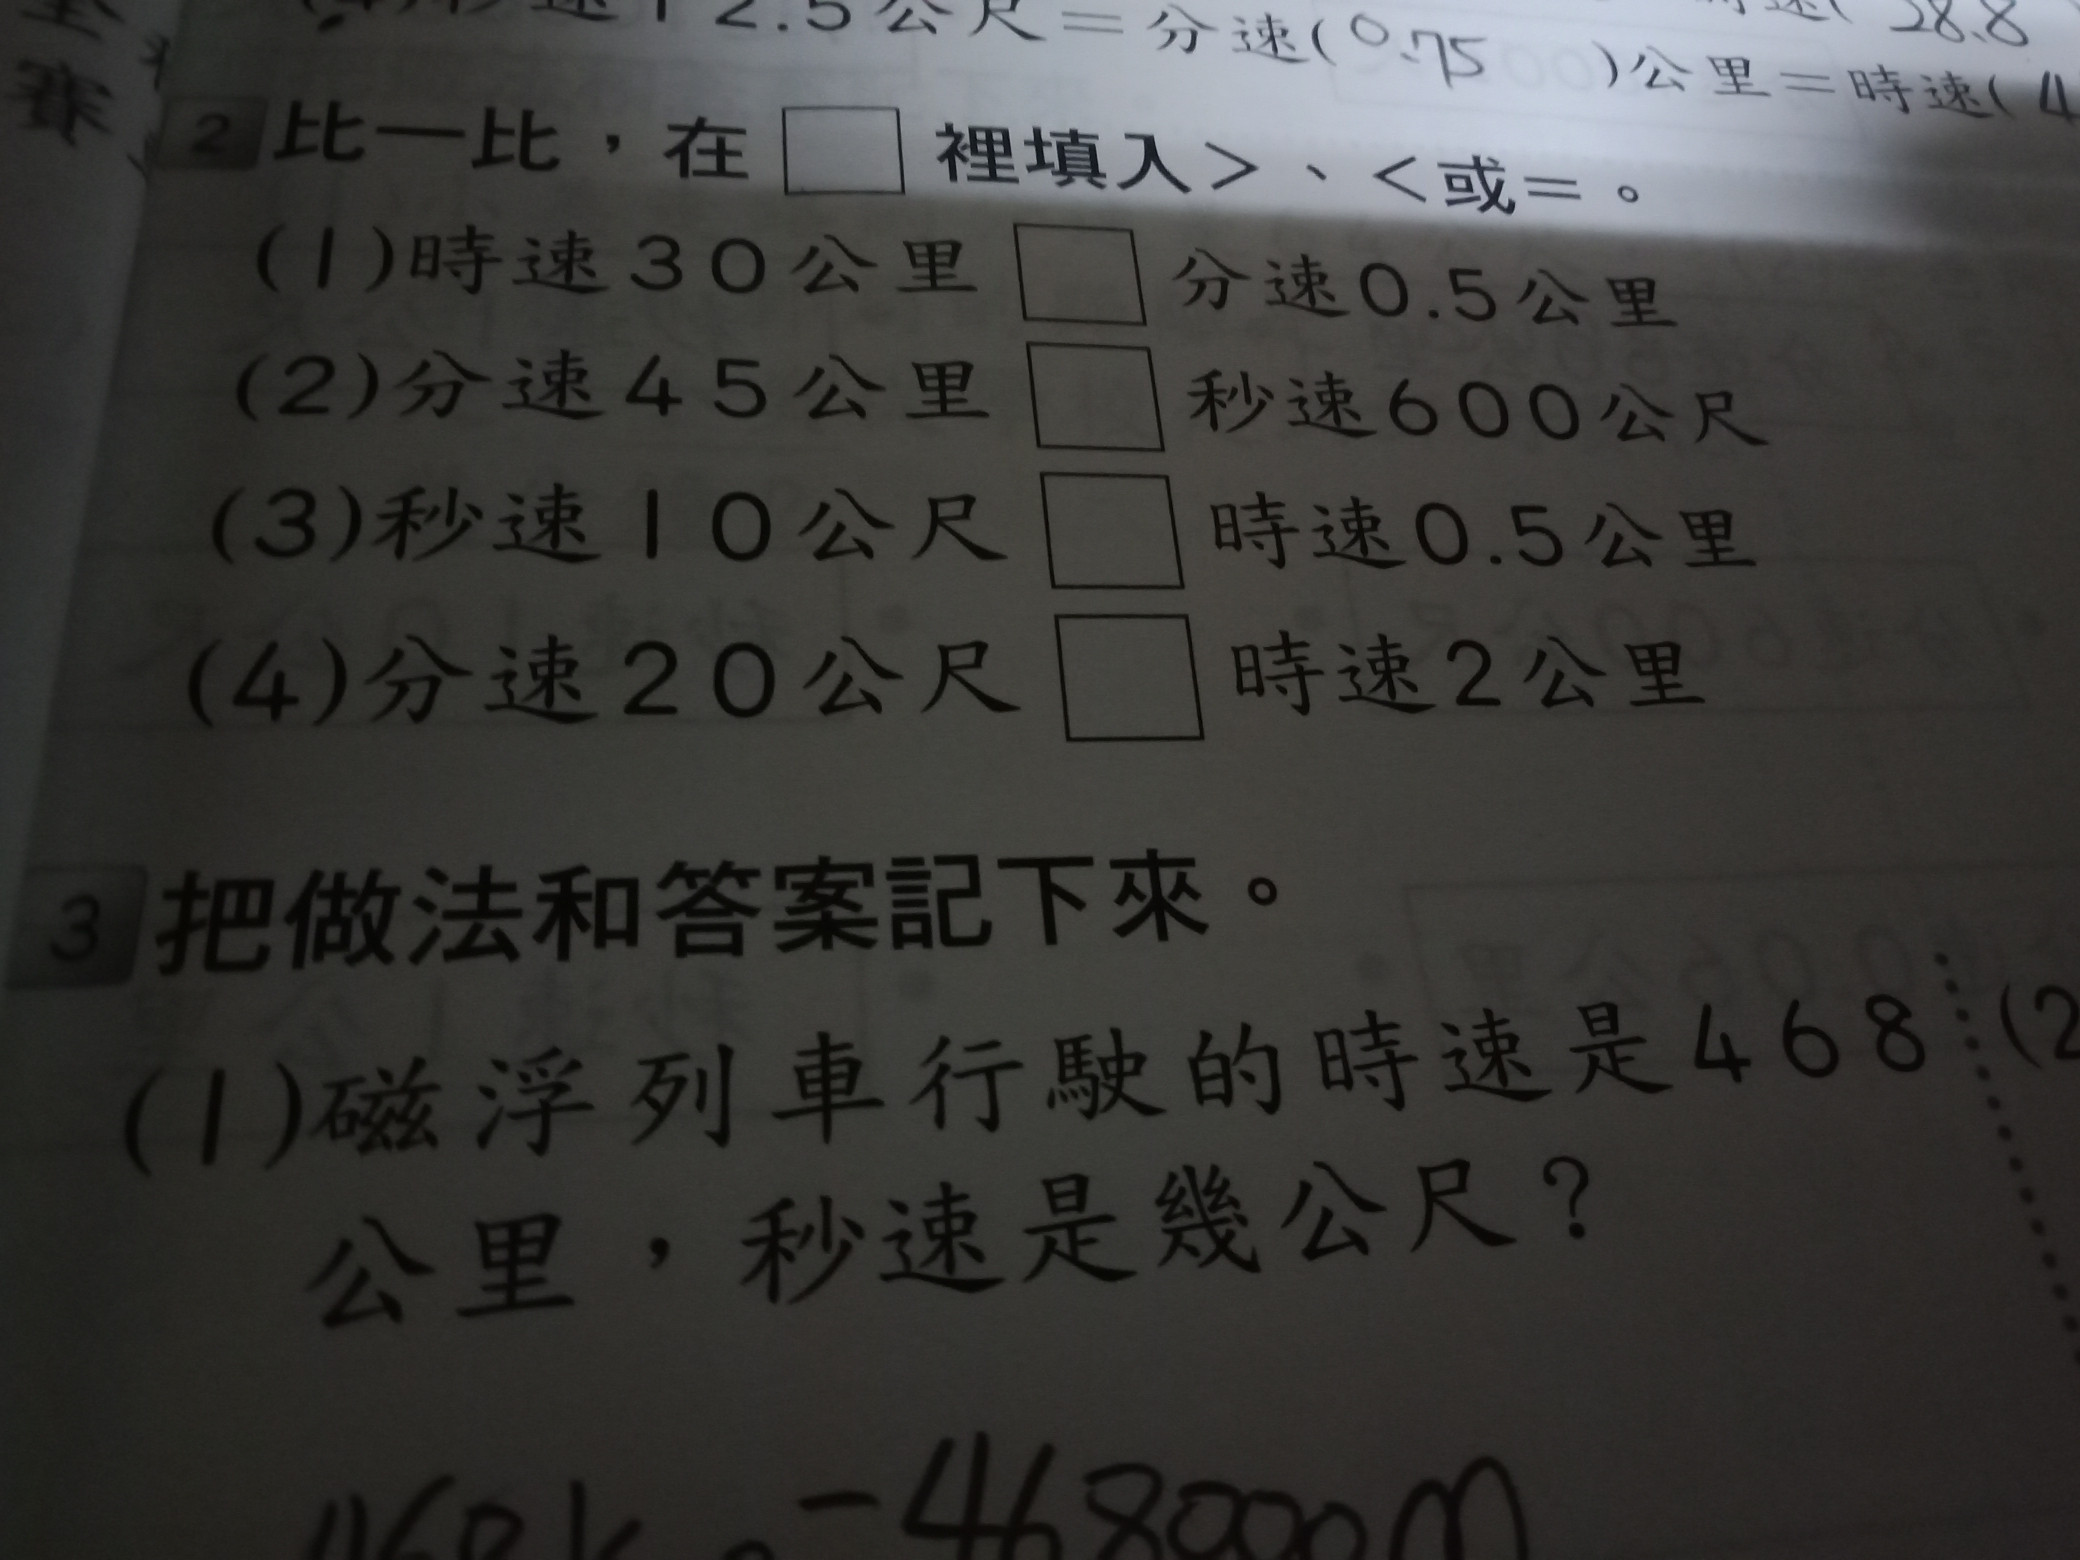 速12.5公尺=分速(0.75)公里=時速(4
28.8
賽
2 比一比，在□裡填入>、<或=。
(1)時速30公里□分速0.5公里
(2)分速45公里□秒速600公尺
(3)秒速10公尺□時速0.5公里
(4)分速20公尺□時速2公里
3 把做法和答案記下來。
(1)磁浮列車行駛的時速是468 (2
公里，秒速是幾公尺?
468k =468000m